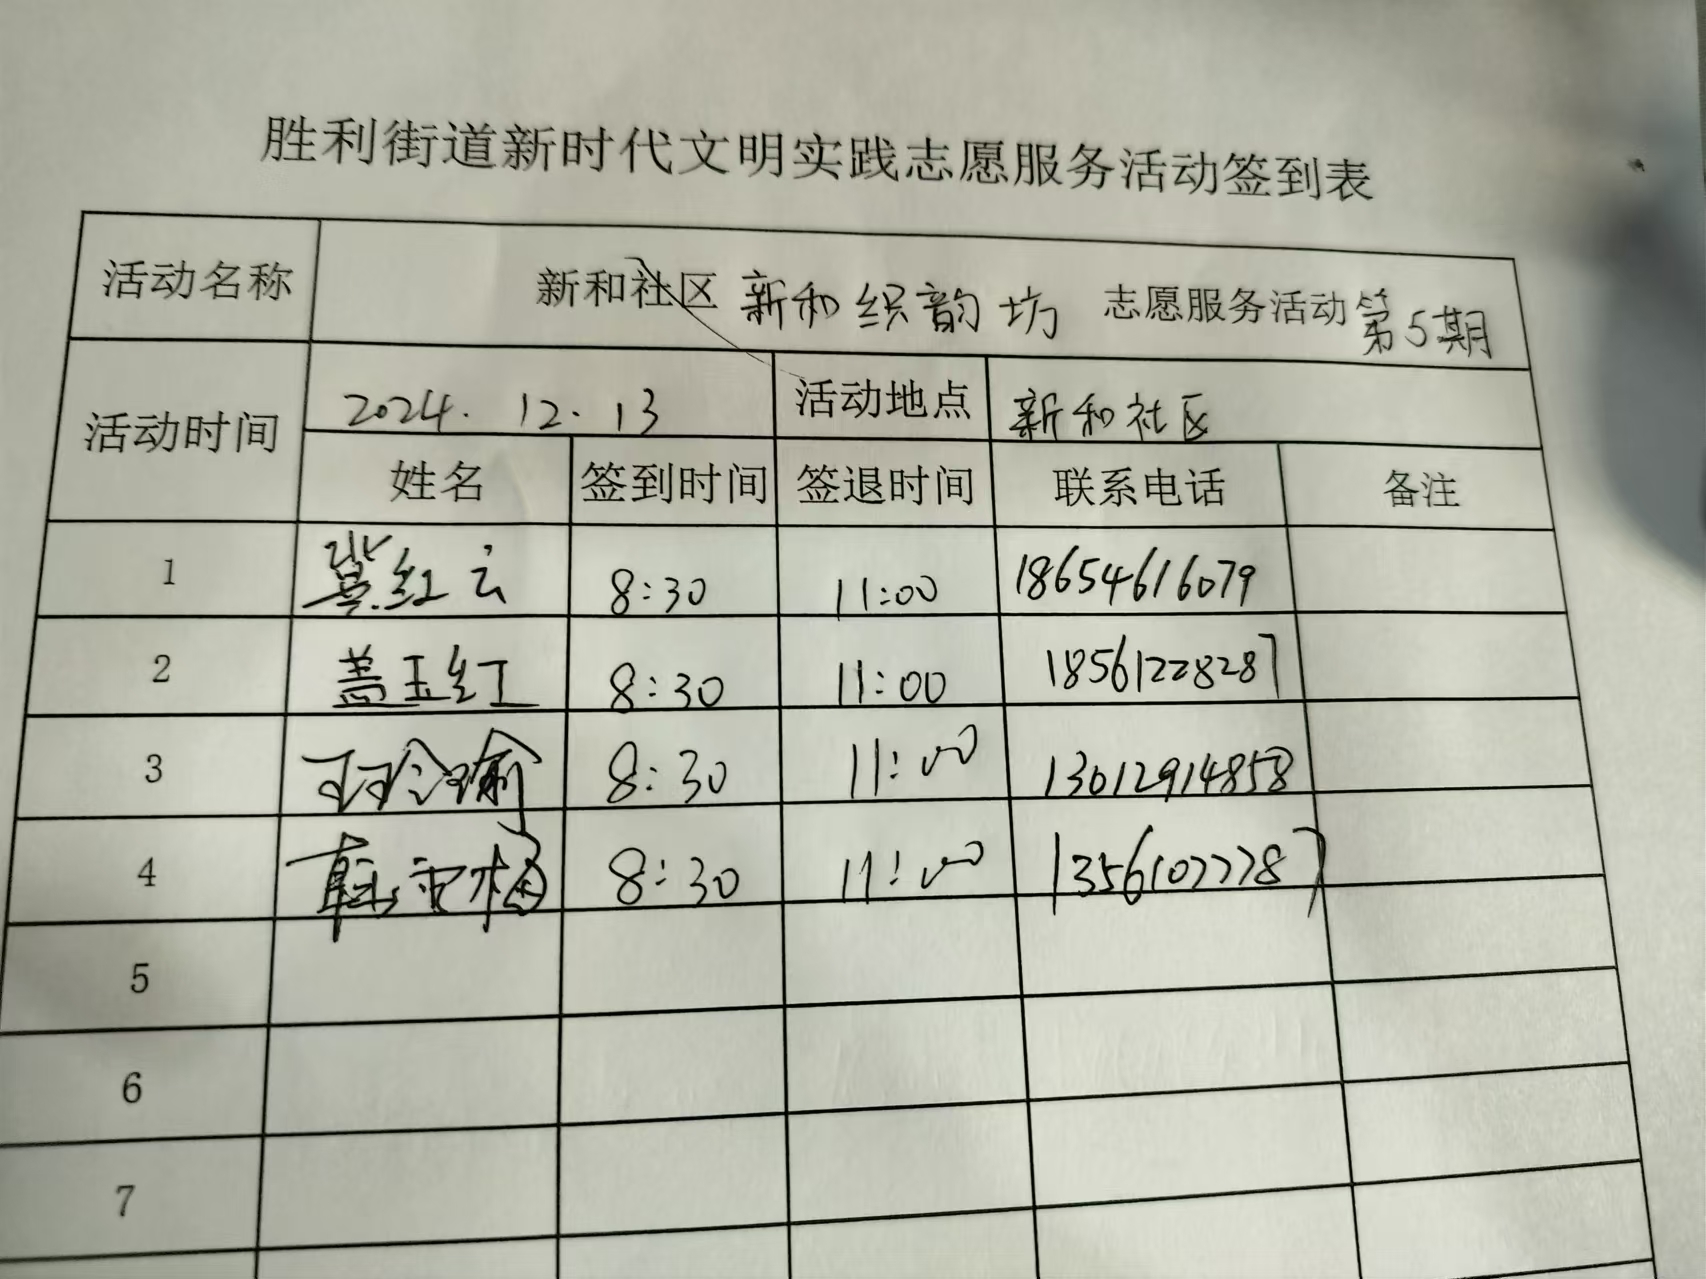 胜利街道新时代文明实践志愿服务活动签到表
活动名称 新和社区 新和织韵坊 志愿服务活动 第5期
活动时间 2024.12.13 活动地点 新和社区
姓名 签到时间 签退时间 联系电话 备注
1 冀红云 8:30 11:00 18654616079
2 盖玉红 8:30 11:00 18561228287
3 8:30 11:00 13012914858
4 8:30 11:00 13561077787
5
6
7